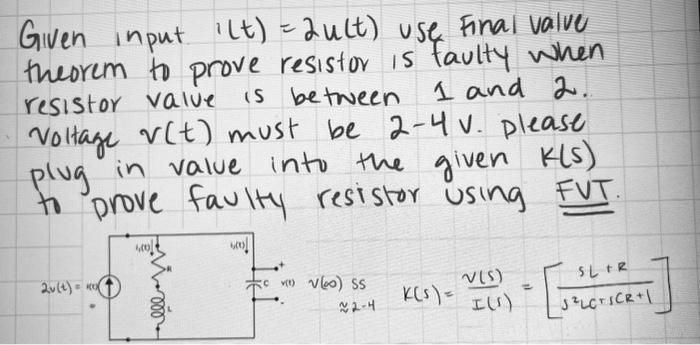 Given input i(t) = 2u(t) use Final value
theorem to prove resistor is faulty when
resistor value is between 1 and 2.
Voltage v(t) must be 2-4 V. please
plug in value into the given K(s)
to prove faulty resistor using FVT.
i₁(t) i₂(t)
2u(t) = i(t) R L C + v(t) v(∞) ss
≈ 2-4
K(s) = V(s) / I(s) = [ sL + R / s²LC + sCR + 1 ]